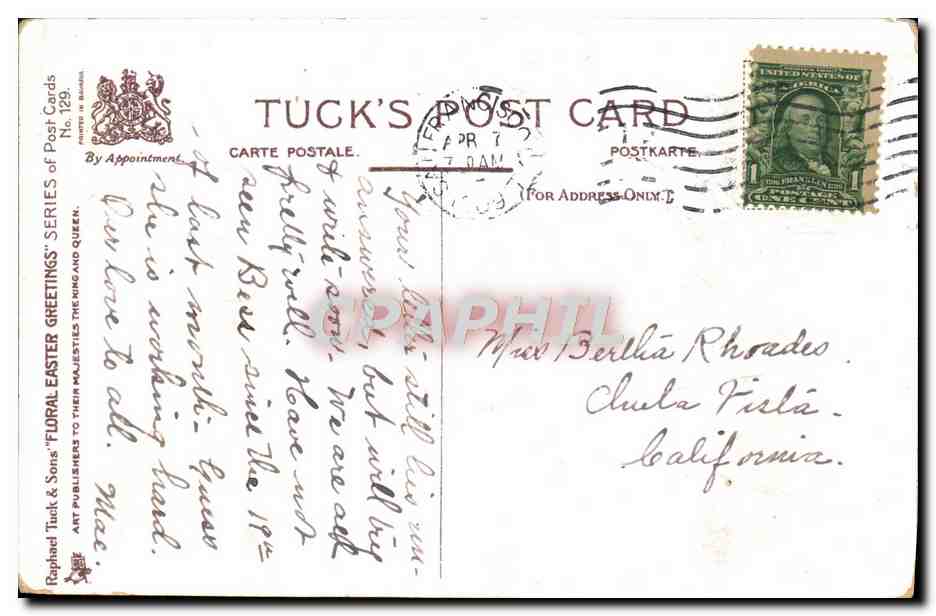 Raphael Tuck & Sons' "FLORAL EASTER GREETINGS" SERIES of Post Cards
No. 129.
PRINTED IN BAVARIA.
ART PUBLISHERS TO THEIR MAJESTIES THE KING AND QUEEN.
By Appointment.
TUCK'S POST CARD
CARTE POSTALE.
POSTKARTE.
(FOR ADDRESS ONLY.)
SAN FRANCISCO
APR 7
AM
UNITED STATES OF
AMERICA
1
FRANKLIN
1
POSTAGE
ONE CENT
Your letter still lies un-
answered, but will try
& write soon. We are all
pretty well. Have not
seen Bess since the 19th
of last month - Guess
she is working hard.
Our love to all. Mac.
Miss Bertha Rhoades.
Chula Vista -
California.
CPAPHIL